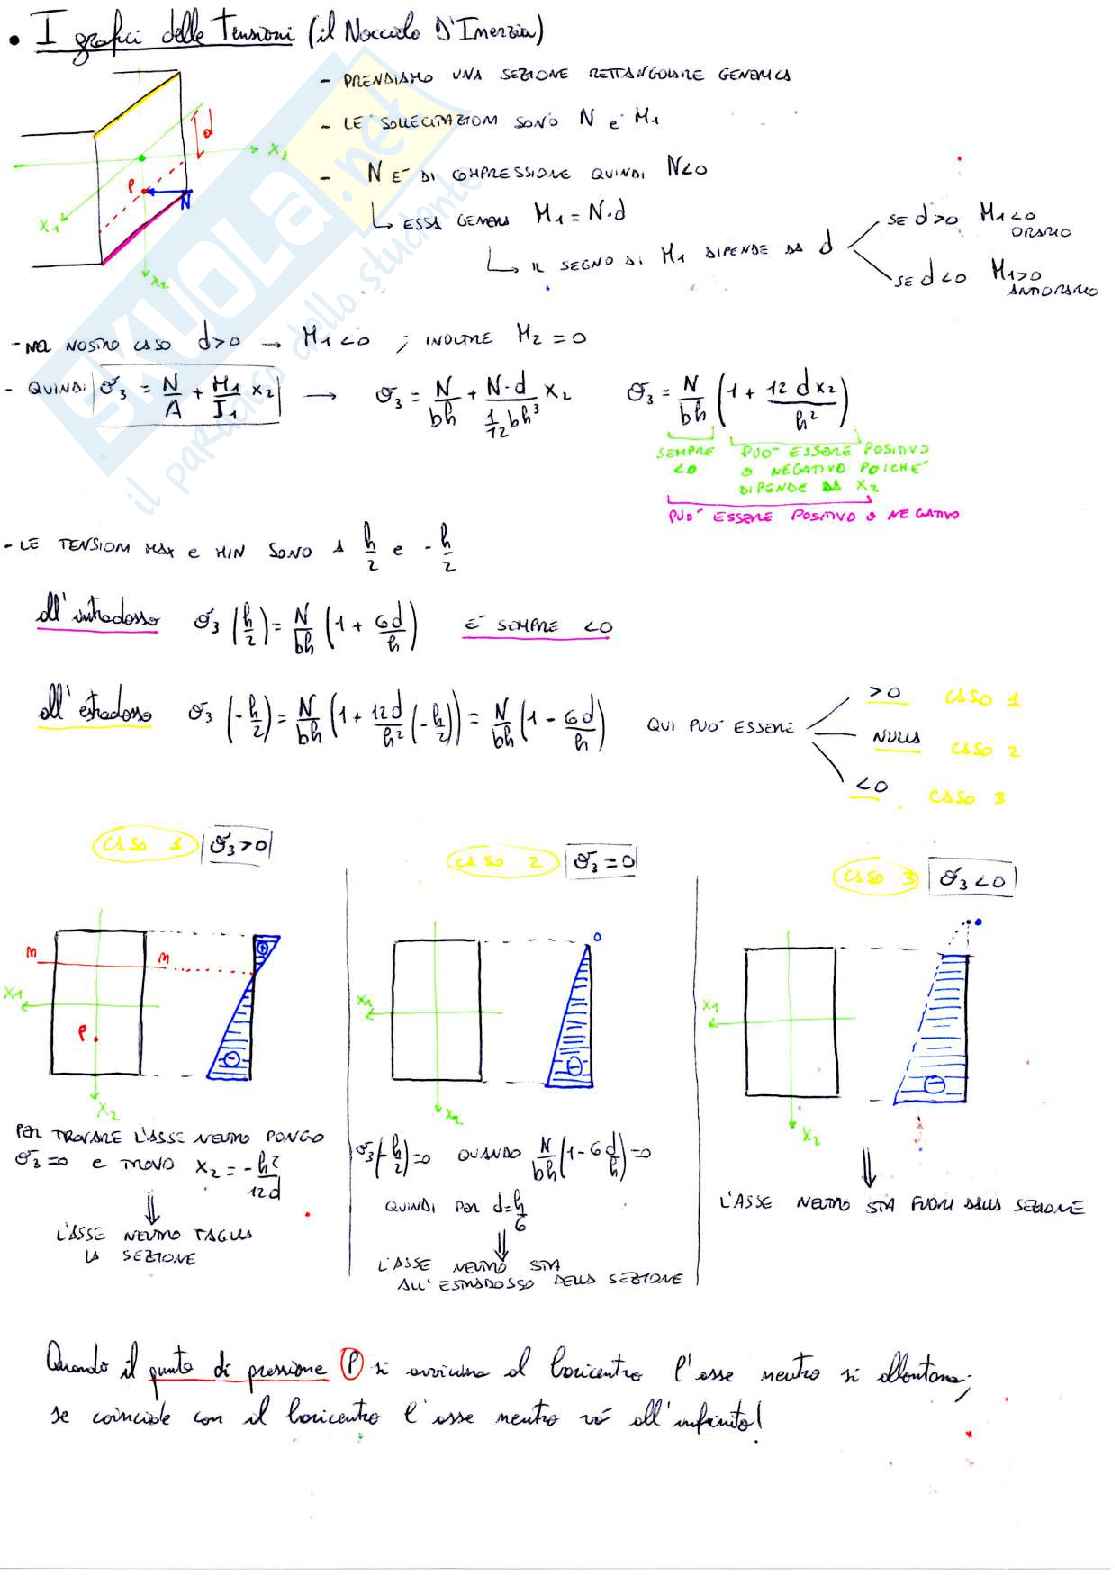 • I grafici delle Tensioni (il Nocciolo D'Inerzia)
- PRENDIAMO UNA SEZIONE RETTANGOLARE GENERICA
- LE SOLLECITAZIONI SONO N e M₁
- N E' DI COMPRESSIONE QUINDI N<0
↳ ESSA GENERA M₁ = N·d
↳ IL SEGNO DI M₁ DIPENDE DA d
SE d>0 M₁<0 ORARIO
SE d<0 M₁>0 ANTIORARIO
d
X₁
P
N
X₁
X₂
SKUOLA.net
il paradiso dello studente
- NEL NOSTRO CASO d>0 → M₁<0 ; INOLTRE M₂ = 0
- QUINDI σ₃ = N/A + M₁/I₁ X₂ → σ₃ = N/bh + N·d/(1/12 bh³) X₂ σ₃ = N/bh (1 + 12 d x₂/h²)
SEMPRE <0
PUO' ESSERE POSITIVO
O NEGATIVO POICHE'
DIPENDE DA X₂
PUO' ESSERE POSITIVO O NEGATIVO
- LE TENSIONI MAX e MIN SONO A h/2 e -h/2
all'intradosso σ₃ (h/2) = N/bh (1 + 6d/h) E' SEMPRE <0
all'estradosso σ₃ (-h/2) = N/bh (1 + 12d/h² (-h/2)) = N/bh (1 - 6d/h) QUI PUO' ESSERE
>0 CASO 1
NULLA CASO 2
<0 CASO 3
CASO 1 σ₃>0
m m
⊕
X₁
P
⊖
X₂
PER TROVARE L'ASSE NEUTRO PONGO
σ₃=0 e TROVO X₂ = -h²/12d
⇓
L'ASSE NEUTRO TAGLIA
LA SEZIONE
CASO 2 σ₃=0
0
X₁
⊖
X₂
σ₃(-h/2)=0 QUANDO N/bh (1-6d/h)=0
QUINDI PER d=h/6
⇓
L'ASSE NEUTRO STA
ALL'ESTRADOSSO DELLA SEZIONE
CASO 3 σ₃<0
X₁
⊖
X₂
⇓
L'ASSE NEUTRO STA FUORI DALLA SEZIONE
Quando il punto di pressione P si avvicina al baricentro l'asse neutro si allontana;
se coincide con il baricentro l'asse neutro và all'infinito!